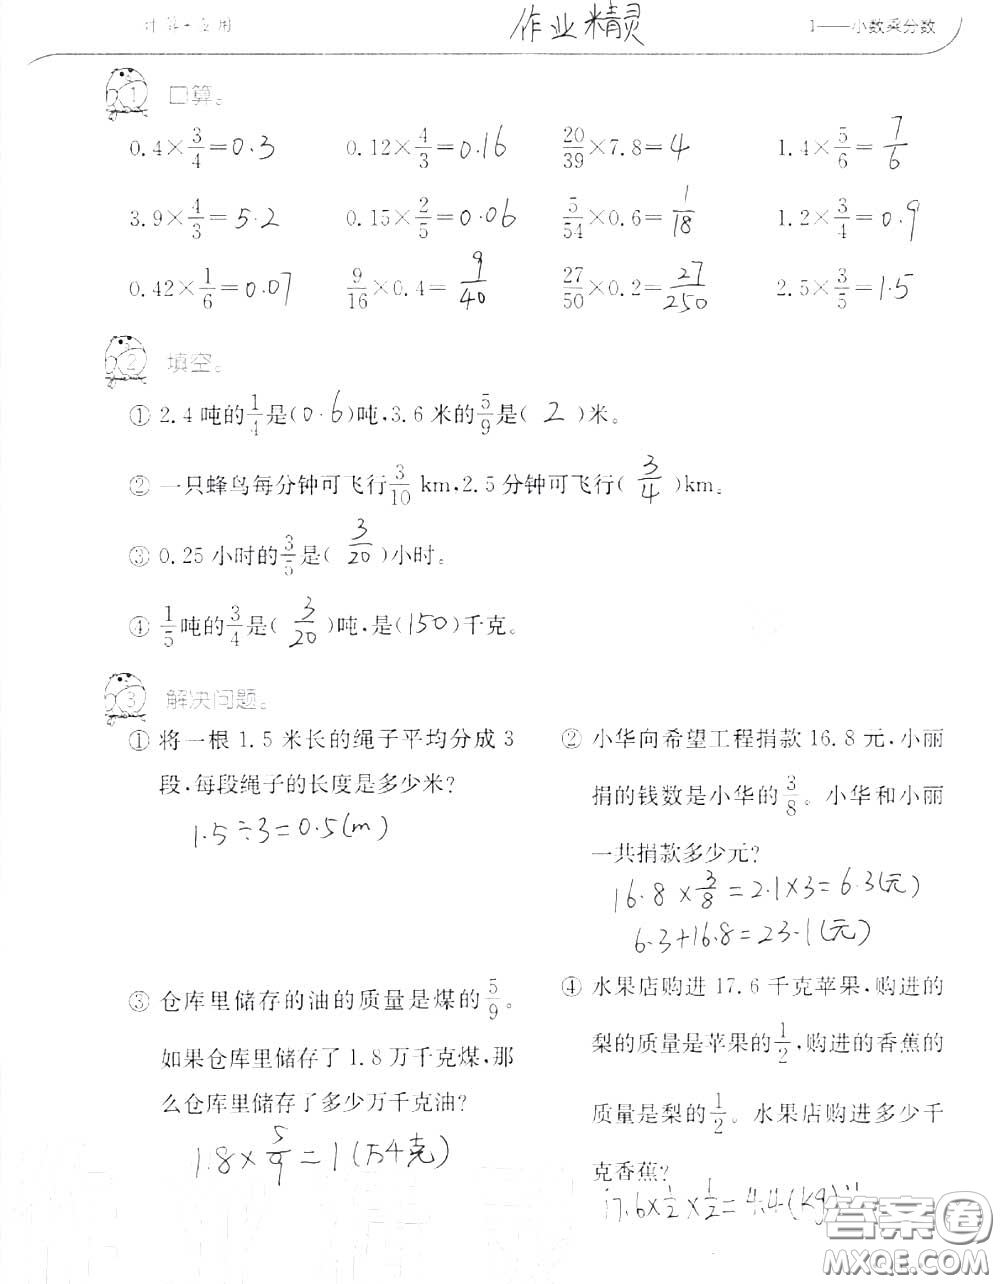 计算·应用 作业精灵 1——小数乘分数
1 口算。
0.4×3/4=0.3 0.12×4/3=0.16 20/39×7.8=4 1.4×5/6=7/6
3.9×4/3=5.2 0.15×2/5=0.06 5/54×0.6=1/18 1.2×3/4=0.9
0.42×1/6=0.07 9/16×0.4=9/40 27/50×0.2=27/250 2.5×3/5=1.5
2 填空。
① 2.4吨的1/4是(0.6)吨,3.6米的5/9是( 2 )米。
② 一只蜂鸟每分钟可飞行3/10 km,2.5分钟可飞行( 3/4 )km。
③ 0.25小时的3/5是( 3/20 )小时。
④ 1/5吨的3/4是( 3/20 )吨,是(150)千克。
3 解决问题。
① 将一根1.5米长的绳子平均分成3
段,每段绳子的长度是多少米?
1.5÷3=0.5(m)
② 小华向希望工程捐款16.8元,小丽
捐的钱数是小华的3/8。小华和小丽
一共捐款多少元?
16.8×3/8=2.1×3=6.3(元)
6.3+16.8=23.1(元)
③ 仓库里储存的油的质量是煤的5/9。
如果仓库里储存了1.8万千克煤,那
么仓库里储存了多少万千克油?
1.8×5/9=1(万千克)
④ 水果店购进17.6千克苹果,购进的
梨的质量是苹果的1/2,购进的香蕉的
质量是梨的1/2。水果店购进多少千
克香蕉?
17.6×1/2×1/2=4.4(kg)
答案圈
MXQE.COM